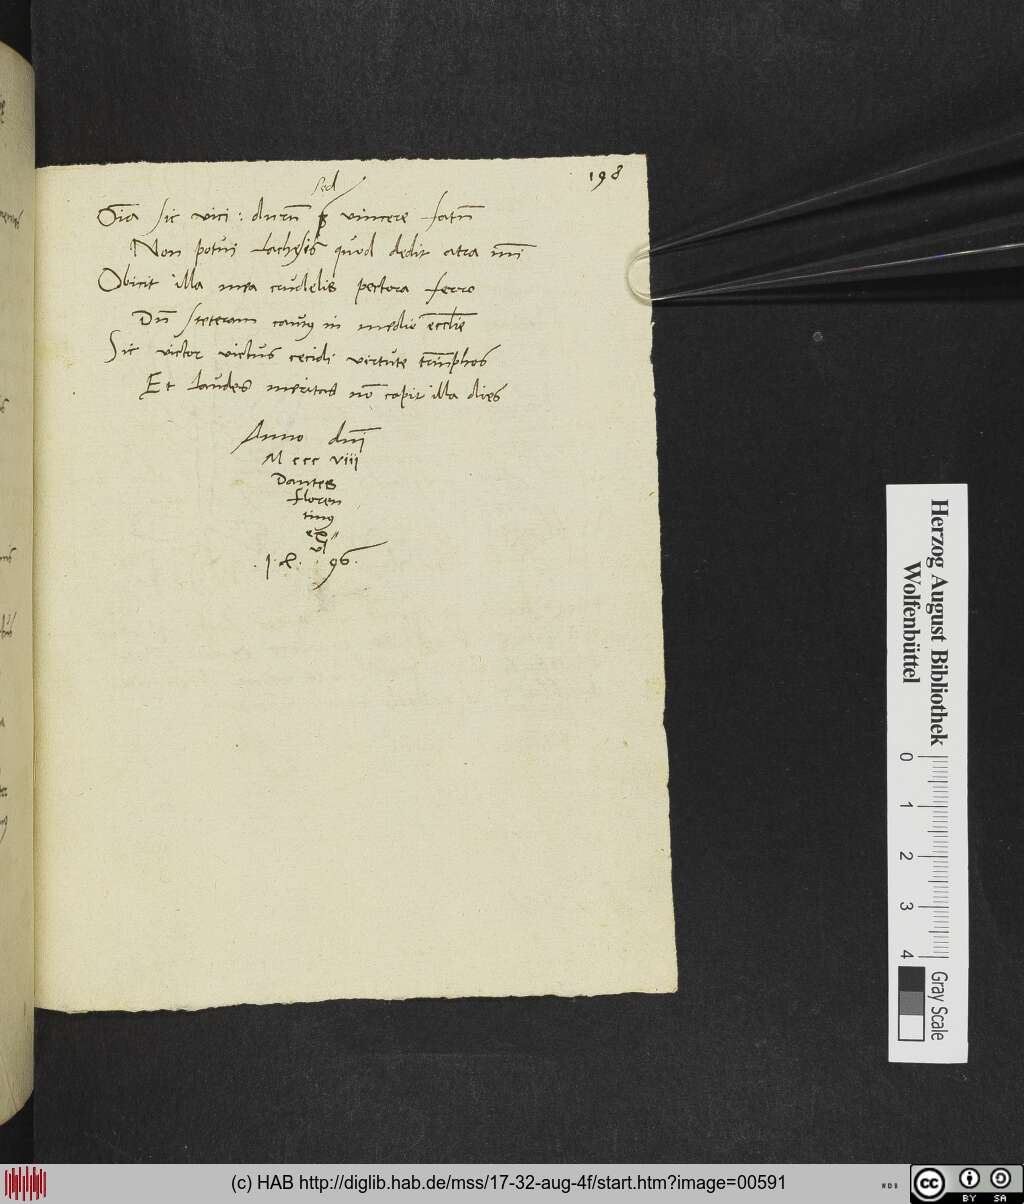 198
sed
sic vici : durũ vincere fatũ
Non potui Lachesis quod dedit atra mĩ
Obicit illa mea crudelis pectora ferro
Dũ steteram in medio ecclẽ
Sic victor victus cecidi virtute triũphos
Et laudes meritas nõ capit illa dies
Anno dnĩ
M ccc viii
Dantes
floren
tinus
.1.4. 96.
Herzog August Bibliothek
Wolfenbüttel
0 1 2 3 4
Gray Scale
(c) HAB http://diglib.hab.de/mss/17-32-aug-4f/start.htm?image=00591
cc BY SA